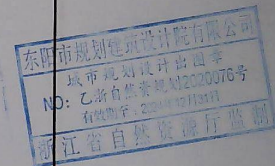 东阳市规划建筑设计院有限公司
城市规划设计出图章
NO：乙浙自然资规划2020076号
有效期至：2021年12月31日
浙江省自然资源厅监制